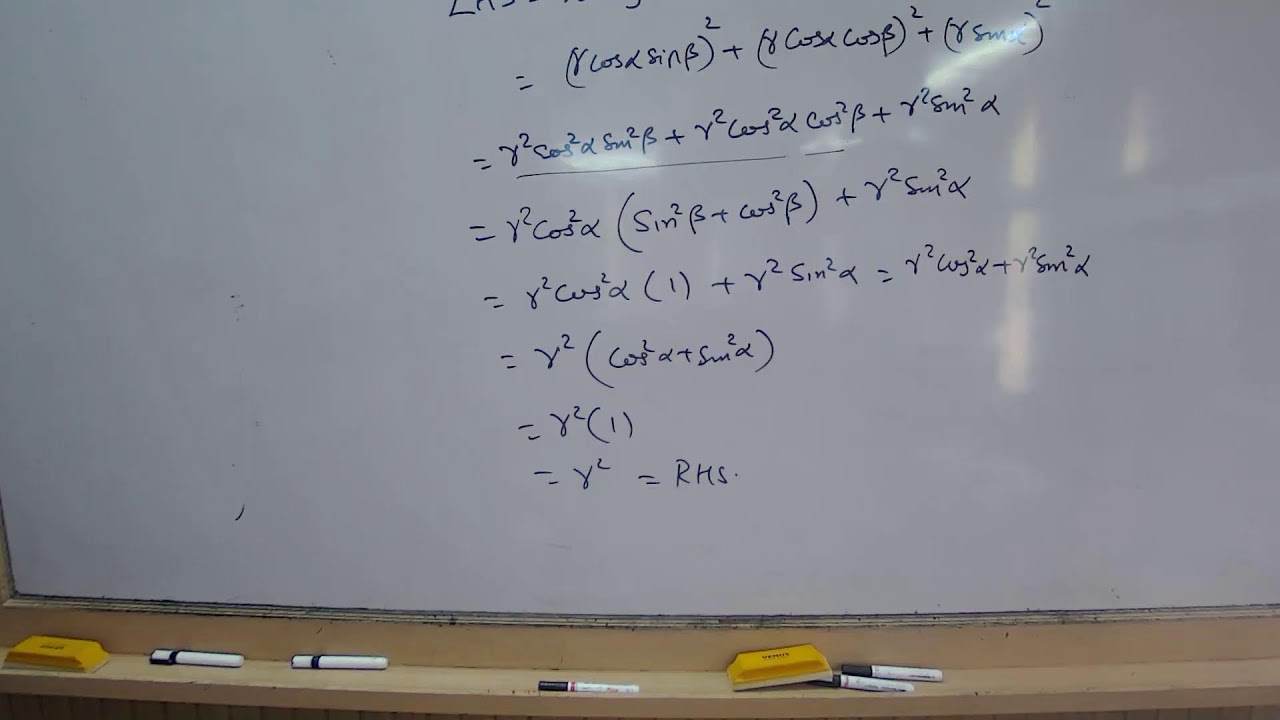 LHS =
= (r cosα sinβ)² + (r cosα cosβ)² + (r sinα)²
= r²cos²α sin²β + r²cos²α cos²β + r²sin²α
= r²cos²α (sin²β + cos²β) + r²sin²α
= r²cos²α (1) + r² sin²α = r²cos²α + r²sin²α
= r² (cos²α + sin²α)
= r²(1)
= r² = RHS.
VENUS